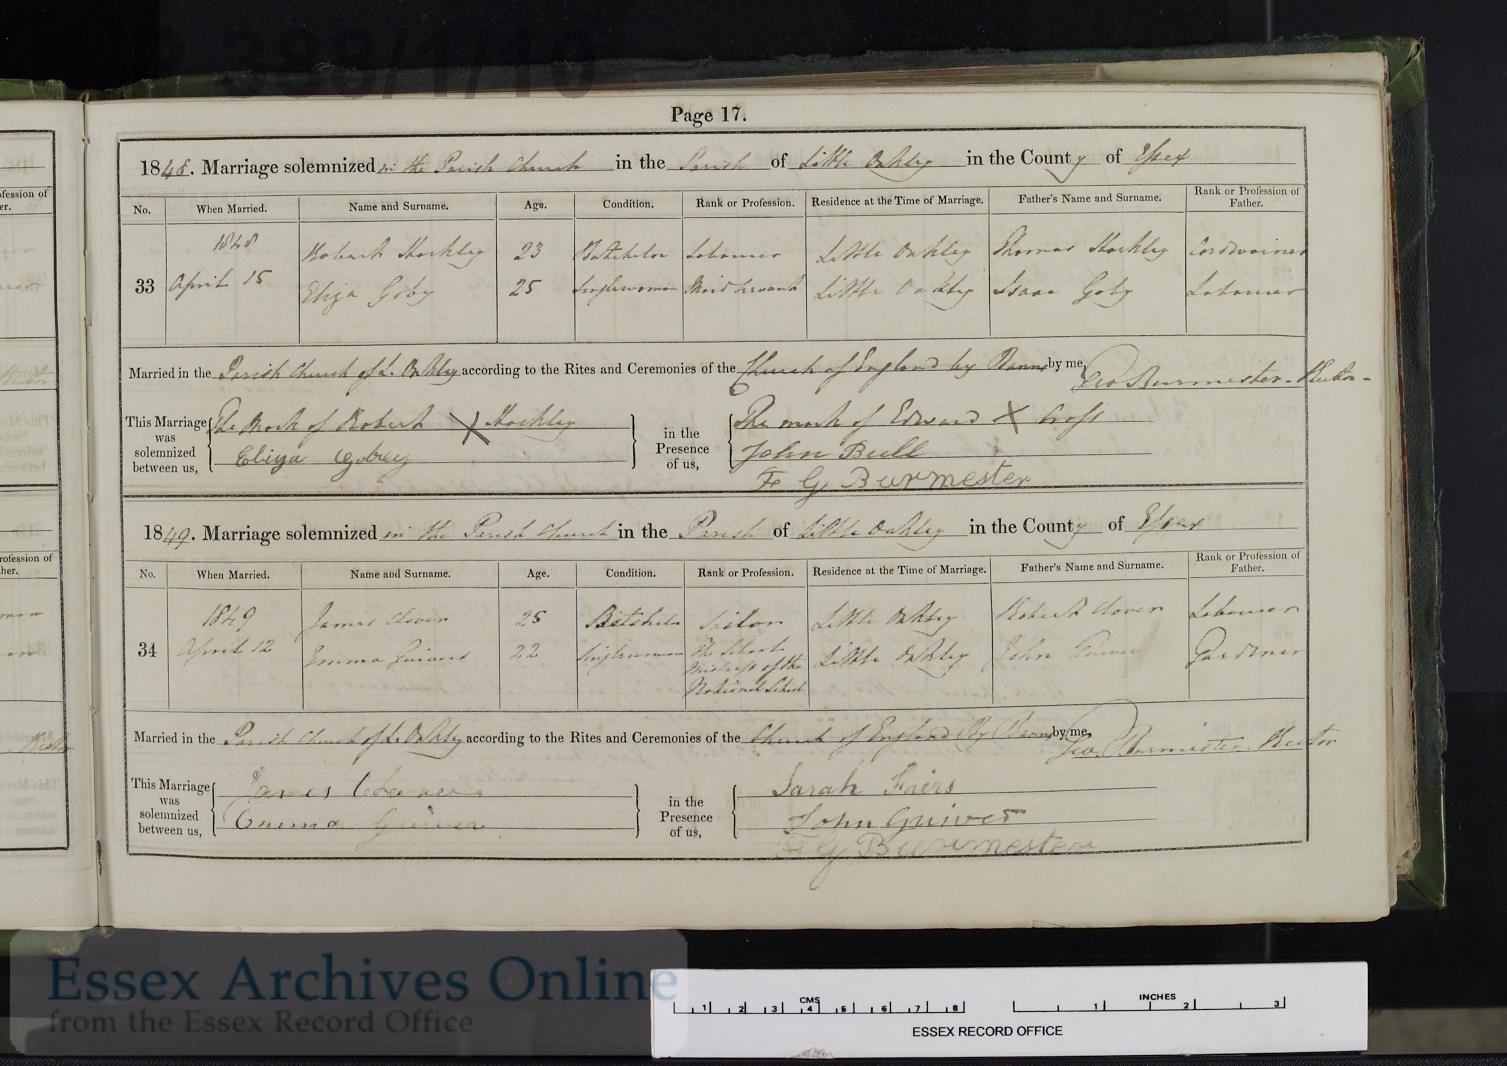 Page 17.
1848. Marriage solemnized in the Parish Church in the Parish of Little Oakley in the County of Essex
No. When Married. Name and Surname. Age. Condition. Rank or Profession. Residence at the Time of Marriage. Father's Name and Surname. Rank or Profession of Father.
1848 Robert Hockley 23 Batchelor Labourer Little Oakley Thomas Hockley Cordwainer
33 April 15 Eliza Goby 25 Singlewoman Maid Servant Little Oakley Isaac Goby Labourer
Married in the Parish Church of L. Oakley according to the Rites and Ceremonies of the Church of England by Banns by me, Geo Burmester - Rector -
This Marriage was solemnized between us, The Mark of Robert X Hockley
Eliza Gobey
in the Presence of us, The mark of Edward X Cross
John Bull
F G Burmester
1849. Marriage solemnized in the Parish Church in the Parish of Little Oakley in the County of Essex
No. When Married. Name and Surname. Age. Condition. Rank or Profession. Residence at the Time of Marriage. Father's Name and Surname. Rank or Profession of Father.
1849 James Clover 25 Little Oakley Robert Clover Labourer
34 April 12 Emma Guiver 22 Singlewoman The School Mistress of the National School Little Oakley John Guiver Gardiner
Married in the Parish Church of L. Oakley according to the Rites and Ceremonies of the Church of England By Banns by me, Geo. Burmester Rector
This Marriage was solemnized between us, James Clover
Emma Guiver
in the Presence of us, Sarah Fairs
John Guiver
F G Burmester
Essex Archives Online
from the Essex Record Office
CMS
1 2 3 4 5 6 7 8
INCHES
1 2 3
ESSEX RECORD OFFICE